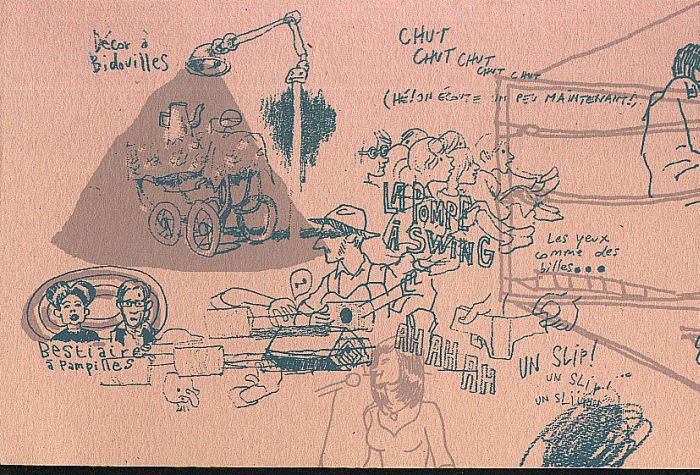 Décor à
Bidouilles
CHUT
CHUT CHUT
CHUT CHUT
(HÉ! ON ÉCOUTE UN PEU MAINTENANT!)
LA POMPE
À SWING
Les yeux
comme des
billes...
Bestiaires
à Pampilles
AH AH AH
AH
UN SLIP!
UN SLIP!...
UN SLIP